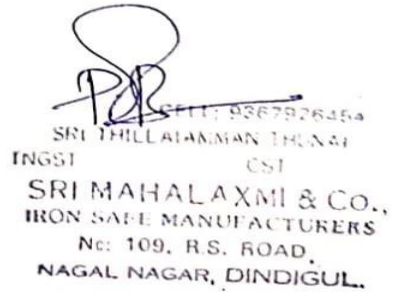 CELL: 9367926454
SRI THILLAIAMMAN THUNAI
TNGST CST
SRI MAHALAXMI & CO.,
IRON SAFE MANUFACTURERS
No: 109, R.S. ROAD,
NAGAL NAGAR, DINDIGUL.